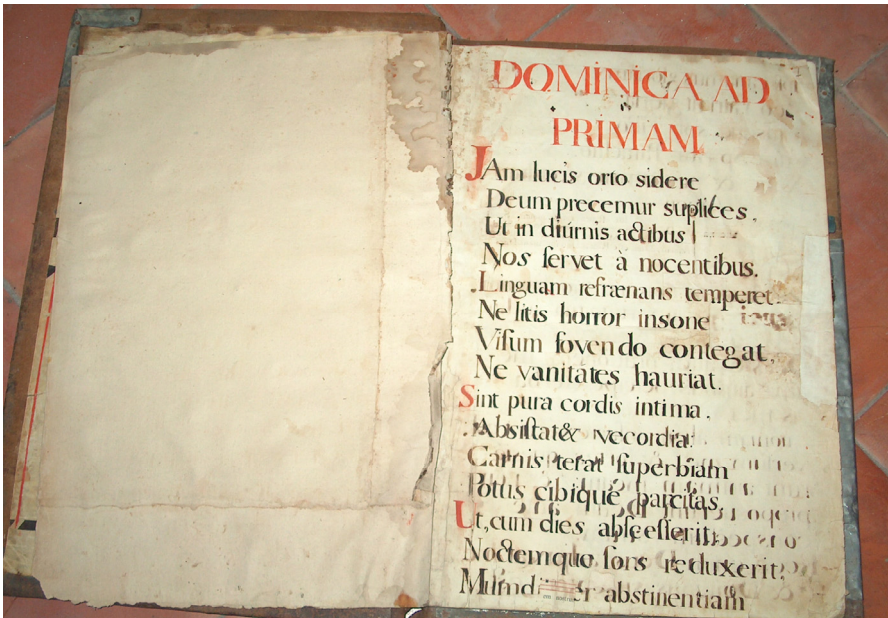 DOMINICA AD
PRIMAM
JAm lucis orto sidere
Deum precemur suplices.
Ut in diúrnis actibus
Nos ſervet à nocentibus.
Linguam refrænans temperet.
Ne litis horror insone
Viſum fovendo contegat,
Ne vanitátes hauriat.
Sint pura cordis intima.
Absiſtat& vecordia:
Carnis terat ſuperbiam
Potus cibique parcitas,
Ut, cum dies abſceſſerit,
Noctemque ſors reduxerit,
Mund er abstinentiam